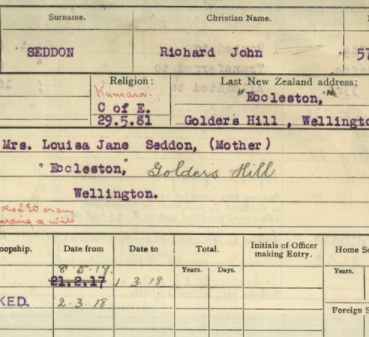 Surname. Christian Name.
SEDDON Richard John 57
Religion: Last New Zealand address:
Kumara. "Eccleston,"
C of E.
29.5.81 Golders Hill, Wellingto
Mrs. Louisa Jane Seddon, (Mother)
"Eccleston," Golders Hill
Wellington.
oopship. Date from Date to Total. Initials of Officer making Entry. Home Se
Years. Days. Years.
21.2.17 1.3.18
KED. 2.3.18
Foreign S